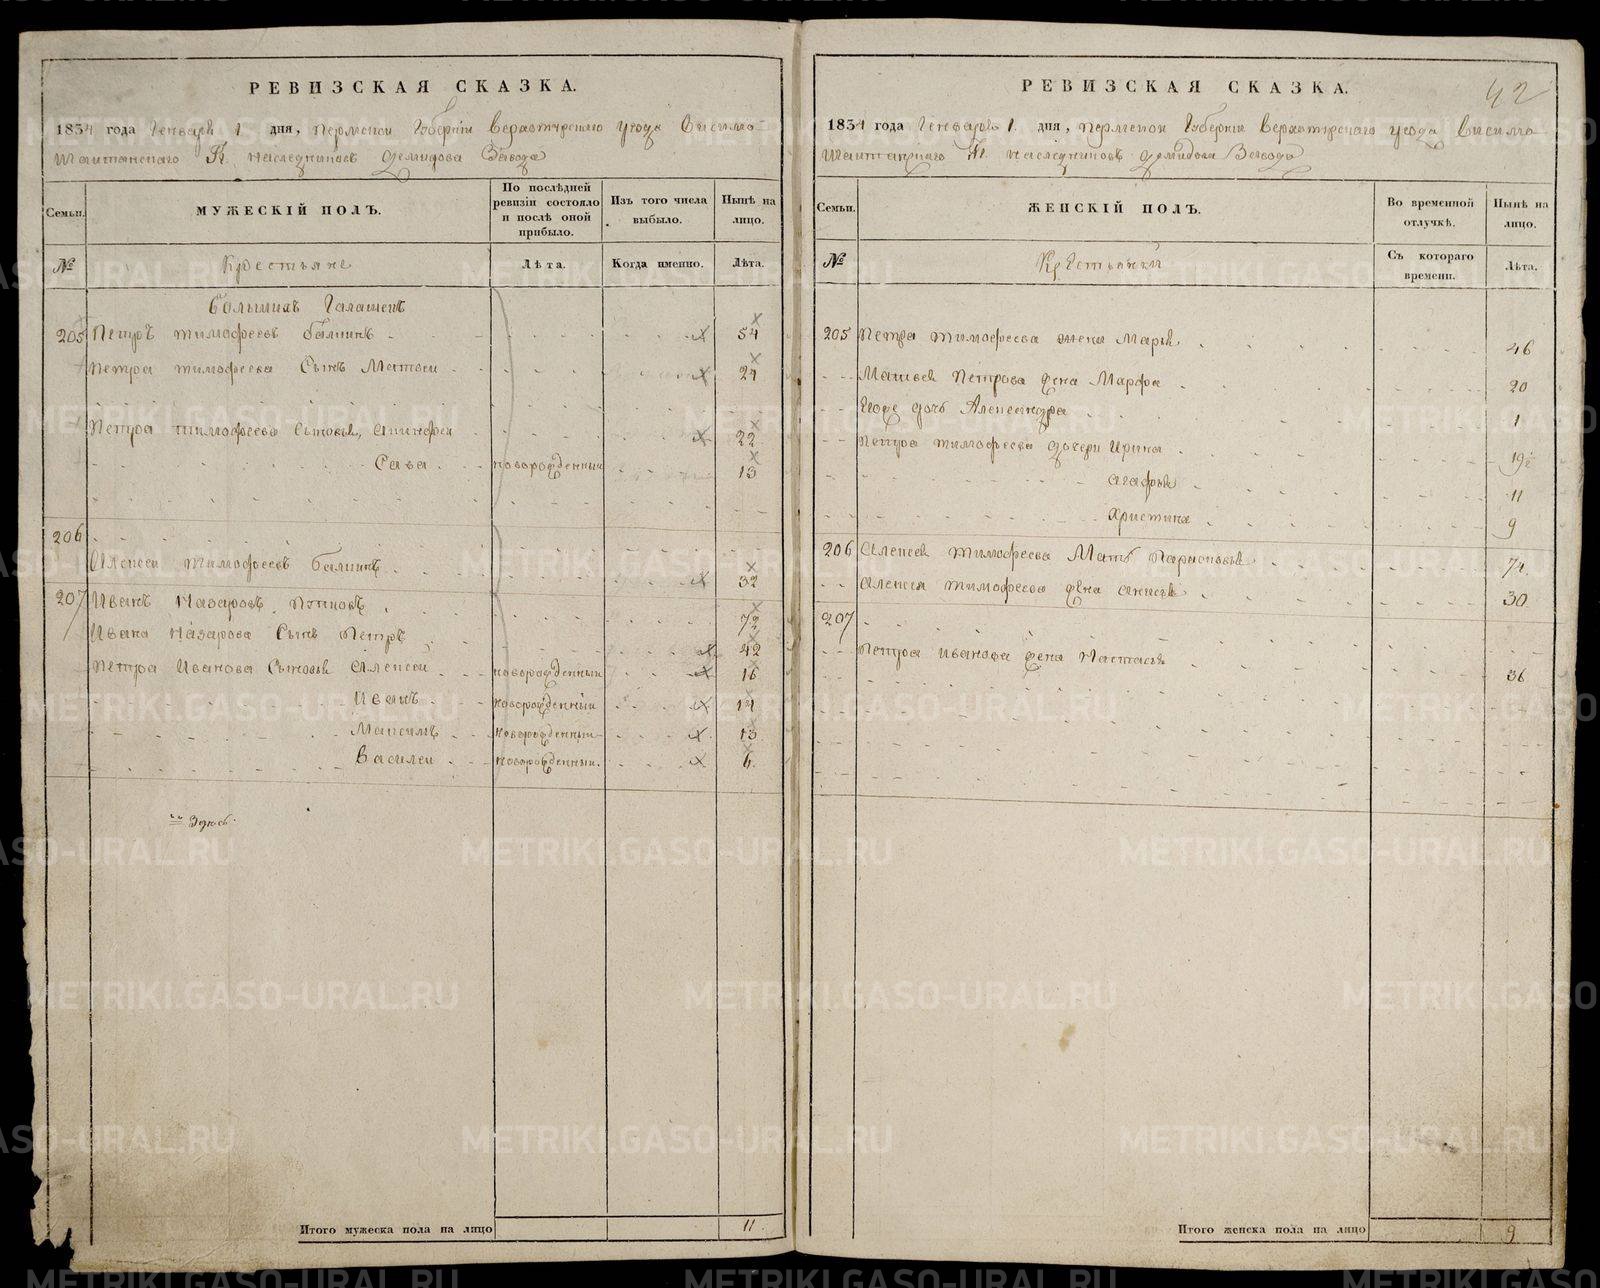 РЕВИЗСКАЯ СКАЗКА.
1834 года Генваря 1 дня, Пермской Губернии Верхотурскаго уезда Висимо
Шайтанскаго К. Наследников Демидова Завода
Семьи.
МУЖЕСКІЙ ПОЛЪ.
По послѣдней ревизіи состояло и послѣ оной прибыло.
Изъ того числа выбыло.
Нынѣ на лицо.
№
Крестьяне
Лѣта.
Когда именно.
Лѣта.
Большихъ Галашекъ
205 Петръ Тимофеевъ 54
Петра Тимофеева Сынъ Матвей 24
Петра Тимофеева Сыновья, 22
Сава новорожденный 13
206
Алексей Тимофеевъ 32
207 Иванъ Назаровъ 72
Ивана Назарова Сынъ Петръ 42
Петра Иванова Сыновья Алексей новорожденный 16
Иванъ новорожденный 14
Максимъ новорожденный 13
Василей новорожденный 6
Итого мужеска пола на лицо 11
42
РЕВИЗСКАЯ СКАЗКА.
1834 года Генваря 1 дня, Пермской Губернии Верхотурскаго уезда Висимо
Шайтанскаго К. Наследников Демидова Завода
Семьи.
ЖЕНСКІЙ ПОЛЪ.
Во временной отлучкѣ.
Нынѣ на лицо.
№
Крестьянки
Съ котораго времени.
Лѣта.
205 Петра Тимофеева жена Марья 46
Матвея Петрова жена Марфа 20
дочь Александра 1
Петра Тимофеева дочери Ирина 19
Агафья 11
Христина 9
206 Алексея Тимофеева Мать 74
Алексея Тимофеева жена Анисья 30
207
Петра Иванова жена Настасья 36
Итого женска пола на лицо 9
METRIKI.GASO-URAL.RU